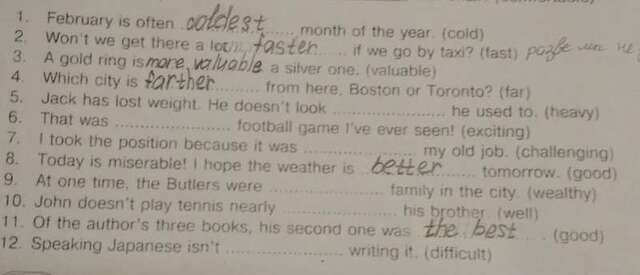 1. February is often coldest month of the year. (cold)
2. Won't we get there a lot faster if we go by taxi? (fast) разве мы не
3. A gold ring is more valuable a silver one. (valuable)
4. Which city is farther from here, Boston or Toronto? (far)
5. Jack has lost weight. He doesn't look .................... he used to. (heavy)
6. That was .................... football game I've ever seen! (exciting)
7. I took the position because it was .................... my old job. (challenging)
8. Today is miserable! I hope the weather is better tomorrow. (good)
9. At one time, the Butlers were .................... family in the city. (wealthy)
10. John doesn't play tennis nearly .................... his brother. (well)
11. Of the author's three books, his second one was the best . (good)
12. Speaking Japanese isn't .................... writing it. (difficult)